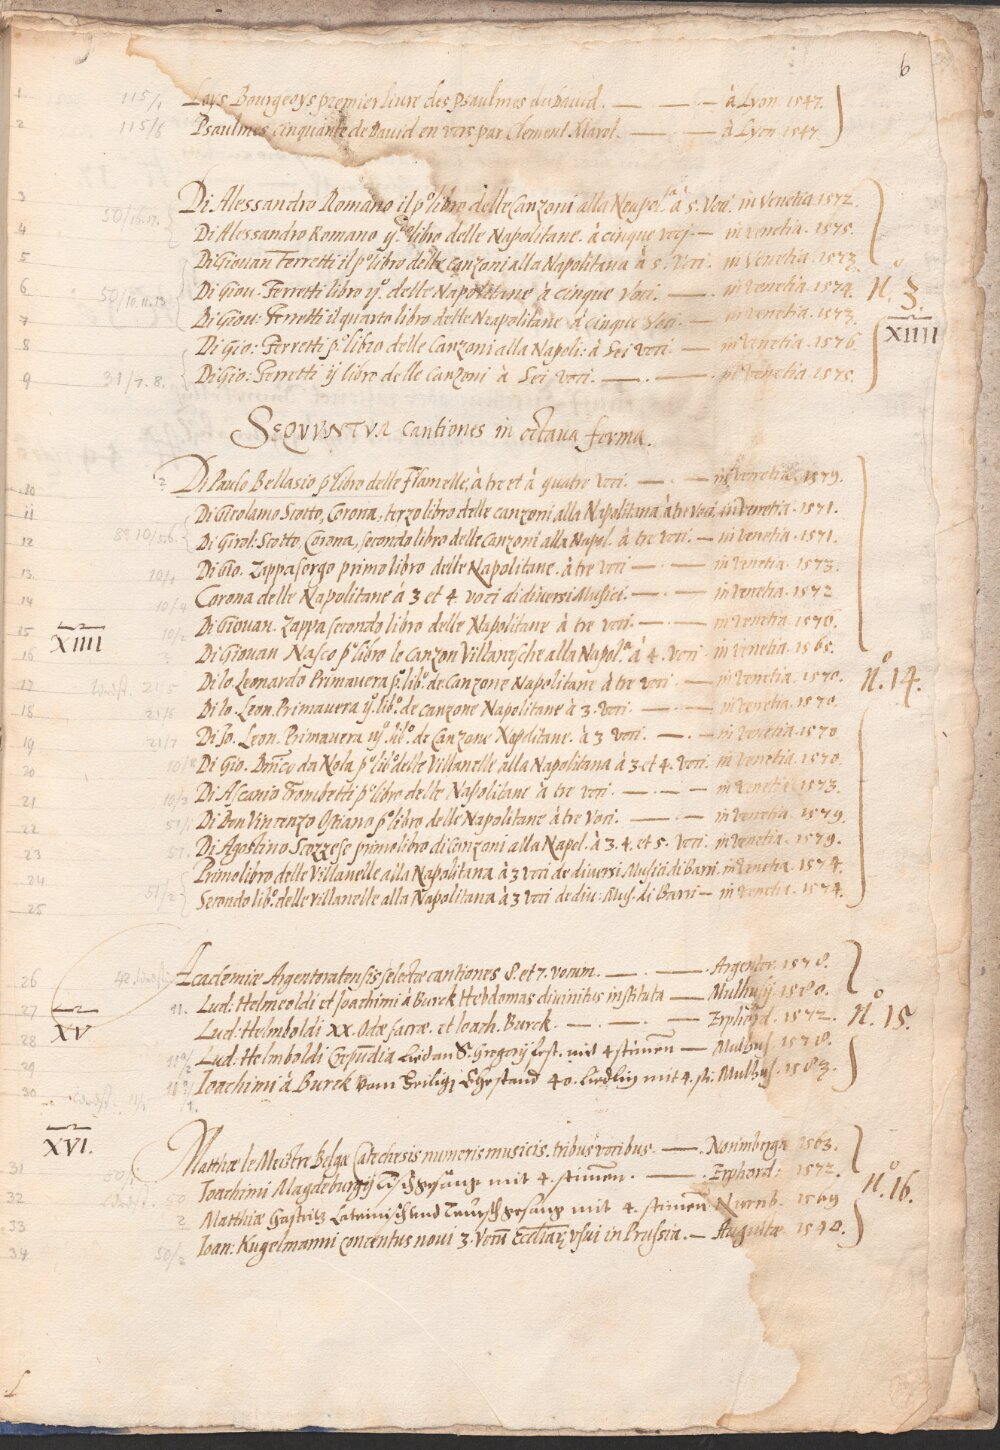 6
1 115/1 Loys Bourgeoys premier livre des Psaulmes du David. — — à Lyon 1547.
2 115/6 Psaulmes cinquante de David en vers par Clement Marot. — — à Lyon 1547
3 Di Alessandro Romano il pº libro delle Canzoni alla Neapol.ª à 5. Voci. in Venetia 1572.
4 Di Alessandro Romano ijº libro delle Napolitane. à cinque voci — in venetia. 1575.
5 Di Giovan Ferretti il pº libro delle canzoni alla Napolitana à 5. Voci. in Venetia. 1573
6 50/10.11.13 Di Giov. Ferretti libro ijº delle Napolitane à cinque Voci. — in venetia. 1574. N.º 3.
7 Di Giov: Ferretti il quarto libro delle Neapolitane à cinque Voci. — in venetia. 1573.
XIIII
8 Di Gio: Ferretti pº libro delle Canzoni alla Napoli: à Sei voci — in venetia. 1576
9 31/7.8. Di Gio: Ferretti ij libro delle Canzoni à Sei Voci. — — in venetia. 1575.
SEQVVNTVR Cantiones in octava forma.
10 Di Paulo Bellasio pº libro delle Flamelle, à tre et à quatre Voci. — — in venetia. 1579.
11 Di Girolamo Scotto, Corona, terzo libro delle canzoni alla Napolitana à tre Voci in Venetia. 1571.
12 Di Girol: Scotto, Corona, secondo libro delle Canzoni alla Napol. à tre voci. — in venetia. 1571.
13. Di Gio. Zappasorgo primo libro delle Napolitane. à tre voci — — in venetia. 1573.
14 10/4 Corona delle Napolitane à 3 et 4 voci di diversi Musici. — — in venetia. 1572
15 10/2 Di Giovan. Zappa secondo libro delle Napolitane à tre voci. — — in venetia. 1576.
XIIII
16 Di Giovan Nasco pº libro le Canzon Villanesche alla Napol.ª à 4. Voci in venetia. 1565.
17 21/5 Di Io Leonardo Primavera pº libº de Canzone Napolitane à tre voci — in venetia. 1570. N.º 14.
18 21/6 Di Io. Leon. Primavera ijº libº de canzone Napolitane à 3. Voci. — in venetia. 1570.
19 21/7 Di Io. Leon. Primavera iijº libº de Canzone Napolitane. à 3 voci. — in venetia. 1570
20 Di Gio. Dnico da Nola pº libº delle Villanelle alla Napolitana à 3 et 4. voci in venetia. 1570.
21 10/3 Di Ascanio Trombetti pº libro delle Napolitane à tre voci. — — in venetia. 1573.
22 Di Don Vincenzo Ostiano pº libro delle Napolitane à tre Voci. — in venetia. 1579
23 Di Agostino Scozzese primo libro di Canzoni alla Napol. à 3. 4. et 5. Voci. in venetia. 1579.
24 Primo libro delle Villanelle alla Napolitana à 3 voci de diversi Musici di Barri in Venetia. 1574.
25 51/2 Secondo libº delle villanelle alla Napolitana à 3 voci de div: Mus. di Barri — in venetia. 1574.
26 Academiæ Argentoratensis selectæ cantiones 8. et 7. vocum. — — Argentor. 1578.
27 41. Lud: Helmboldi et Joachimi à Burck Hebdomas divinitus instituta — Mulhusij 1580. N.º 15.
XV
28 Lud: Helmboldi XX. Odæ sacræ. et Ioach. Burck. — — Erphord. 1572.
29 Lud: Helmboldi Crepundia Liedlin S. Gregorij fest. mit 4 stimen — Mulhus. 1578.
30 Ioachimi à Burck vom Heilige Ehestand 40. Liedlin mit 4. sti. Mulhus. 1583.
XVI.
31 Matthæ le Meistre Belgæ Catechesis numeris musicis. tribus vocibus — Norimbergæ 1563.
32 Ioachimi Magdeburgij Tischgesäng mit 4. stimen. — Erphord: 1572. N.º 16.
33 Matthiæ Gastritz Lateinisch und Teutsch gesang mit 4. stimen Nurnb. 1569
34 50/2 Ioan: Kugelmanni concentus novi 3. Vocū Ecclesiar. usui in Prussia. — Augustæ 1540.